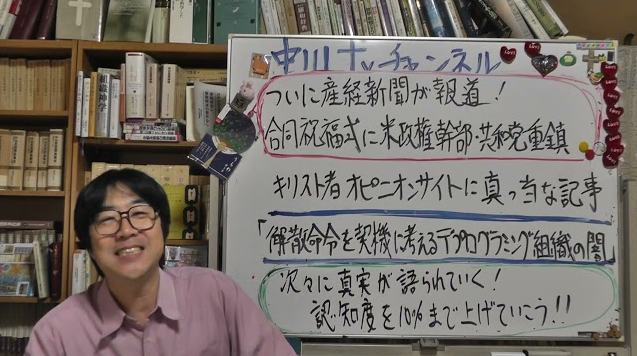 中川TVチャンネル
ついに産経新聞が報道!
合同祝福式に米政権幹部・共和党重鎮
キリスト者オピニオンサイトに真っ当な記事
「解散命令を契機に考えるデプログラミング組織の闇」
次々に真実が語られていく!
認知度を10%まで上げていこう!!
組織神学